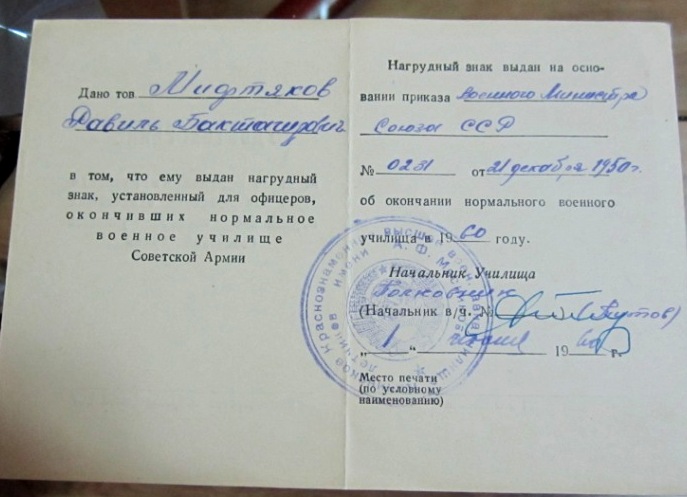 Дано тов Мифтяхов
Давиль
в том, что ему выдан нагрудный
знак, установленный для офицеров,
окончивших нормальное
военное училище
Советской Армии
Нагрудный знак выдан на осно-
вании приказа Военного Министра
Союза ССР
№ 0231 от 21 декабря 1950 г.
об окончании нормального военного
училища в 1960 году.
Начальник Училища
Полковник
(Начальник в/ч. №
„ 1 “ 1960 г.
Место печати
(по условному
наименованию)
Краснознаменное высшее
имени А. Ф.
летчиков